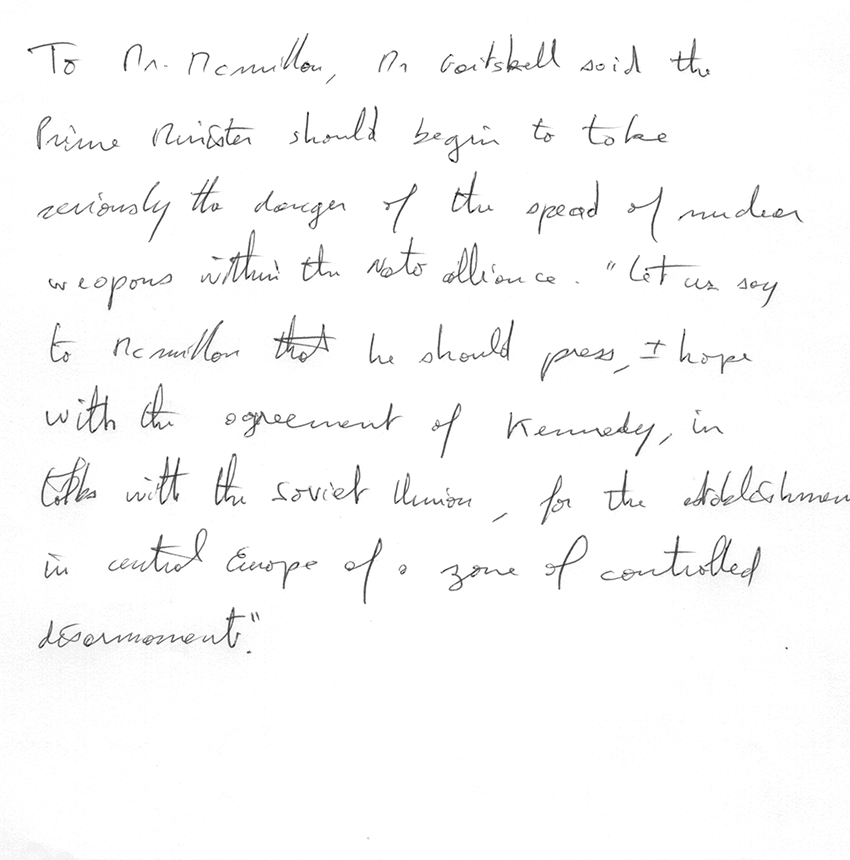 To Mr. Mcmillan, Mr Gaitskell said the
Prime Minister should begin to take
seriously the danger of the spead of nuclear
weapons within the Nato alliance. "Let us say
to Mcmillan that he should press, I hope
with the agreement of Kennedy, in
talks with the Soviet Union, for the establishmen
in central Europe of a zone of controlled
disarmament."